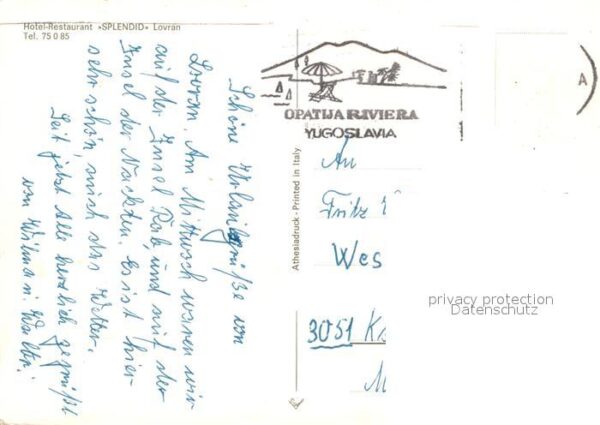 Hotel-Restaurant »SPLENDID« Lovran
Tel. 75 0 85
Schöne Urlaubsgrüße von
Lovran. Am Mittwoch waren wir
auf der Insel Rab, und auf der
Insel der Nackten. Es ist hier
sehr schön, auch das Wetter.
Seit jetzt Alle herzlich gegrüßt
von Wilma u. Walter!
Athesiadruck - Printed in Italy
OPATIJA RIVIERA
YUGOSLAVIA
A
An
Fritz
Wes
3051
privacy protection
Datenschutz